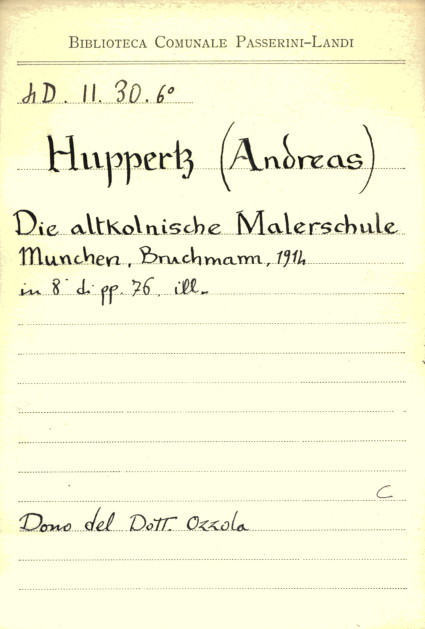 BIBLIOTECA COMUNALE PASSERINI-LANDI
hD. 11. 30. 6°
Huppertz (Andreas)
Die altkolnische Malerschule
Munchen, Bruchmann, 1914
in 8° di pp. 76. ill.
C
Dono del Dott. Ozzola